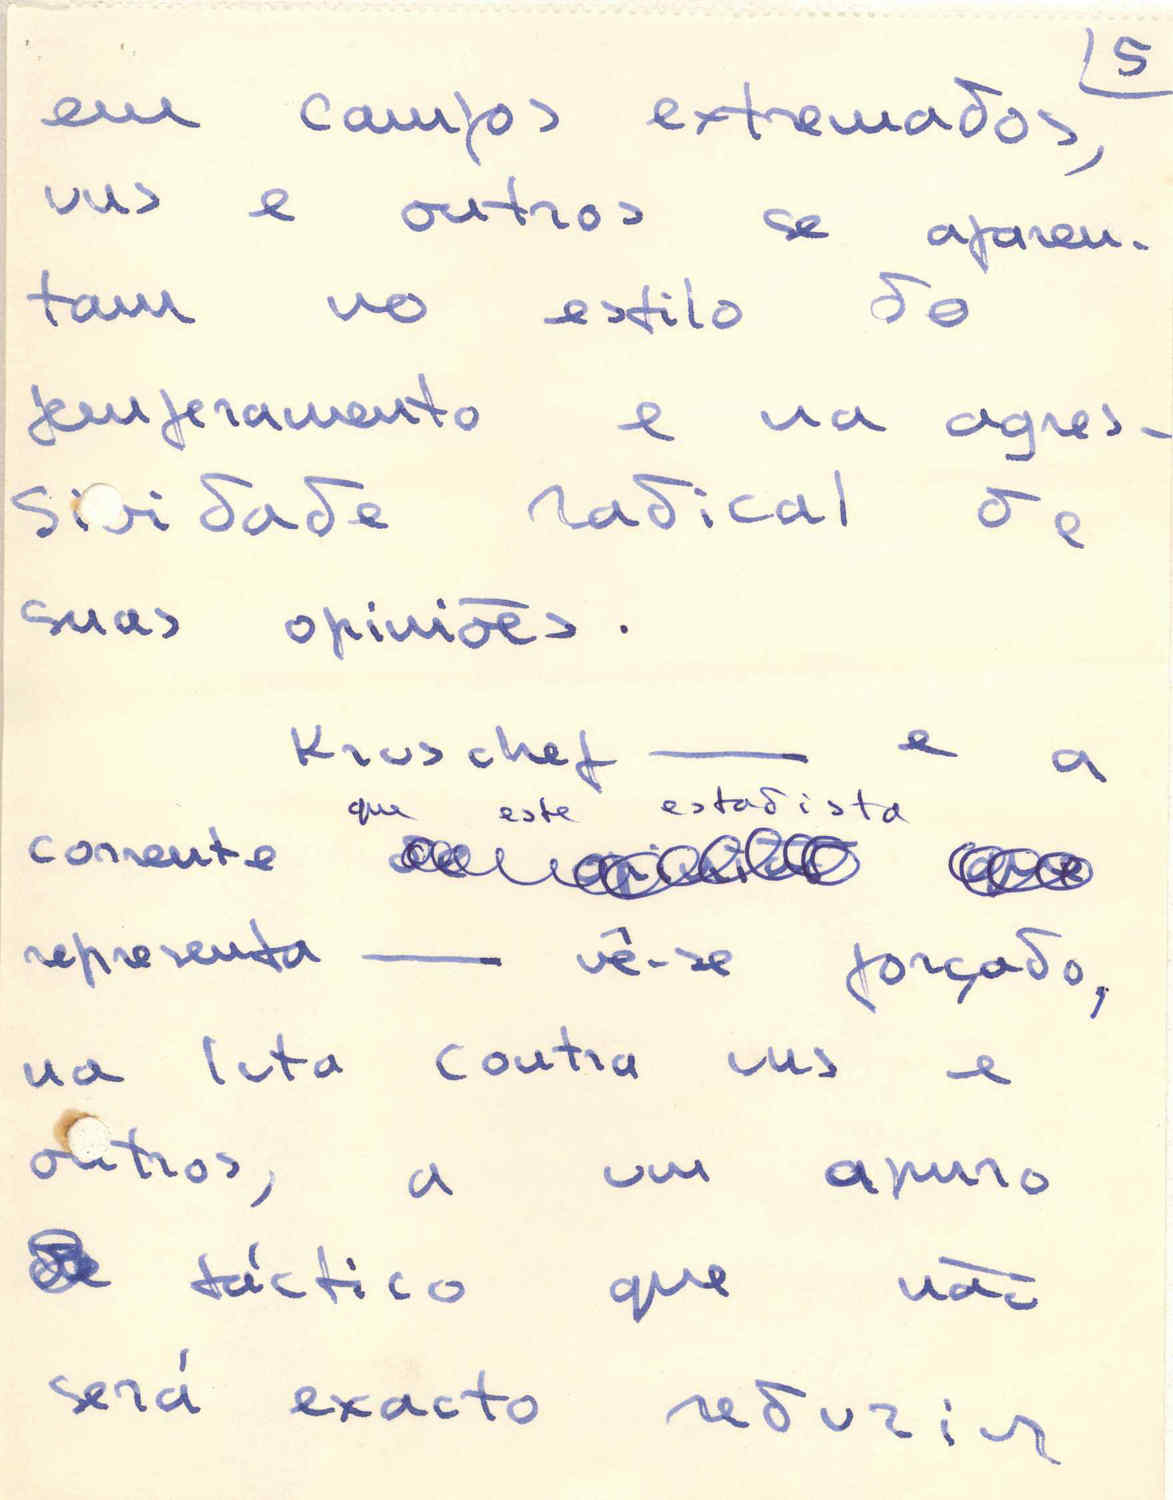 5
em campos extremados,
uns e outros se aparen-
tam no estilo do
temperamento e na agres-
sividade radical de
suas opiniões.
Kruschef — e a
que este estadista
corrente
representa — vê-se forçado,
na luta contra uns e
outros, a um apuro
táctico que não
será exacto reduzir